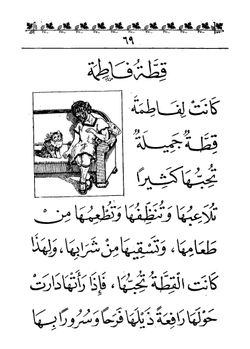 ٦٩
قِطَّةُ فَاطِمَةَ
كَانَتْ لِفَاطِمَةَ
قِطَّةٌ جَمِيلَةٌ
تُحِبُّهَا كَثِيرًا
تُلَاعِبُهَا وَتُنَظِّفُهَا وَتُطْعِمُهَا مِنْ
طَعَامِهَا، وَتَسْقِيهَا مِنْ شَرَابِهَا، وَلِهَذَا
كَانَتِ الْقِطَّةُ تُحِبُّهَا، فَإِذَا رَأَتْهَا دَارَتْ
حَوْلَهَا رَافِعَةً ذَيْلَهَا فَرَحًا وَسُرُورًا بِهَا